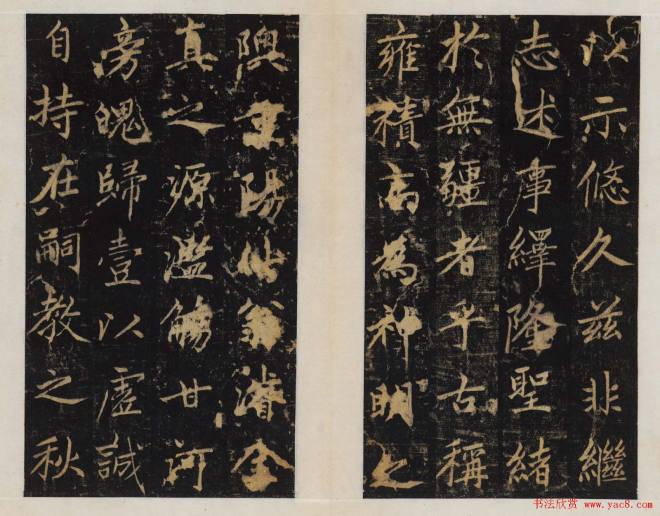 以示悠久兹非繼
志述事繹隆聖緒
於無疆者乎古稱
雍積高為神明之
隩重陽仙翁濬全
真之源濫觴甘河
旁魄歸壹以虛誠
自持在嗣教之秋
书法欣赏 www.yac8.com